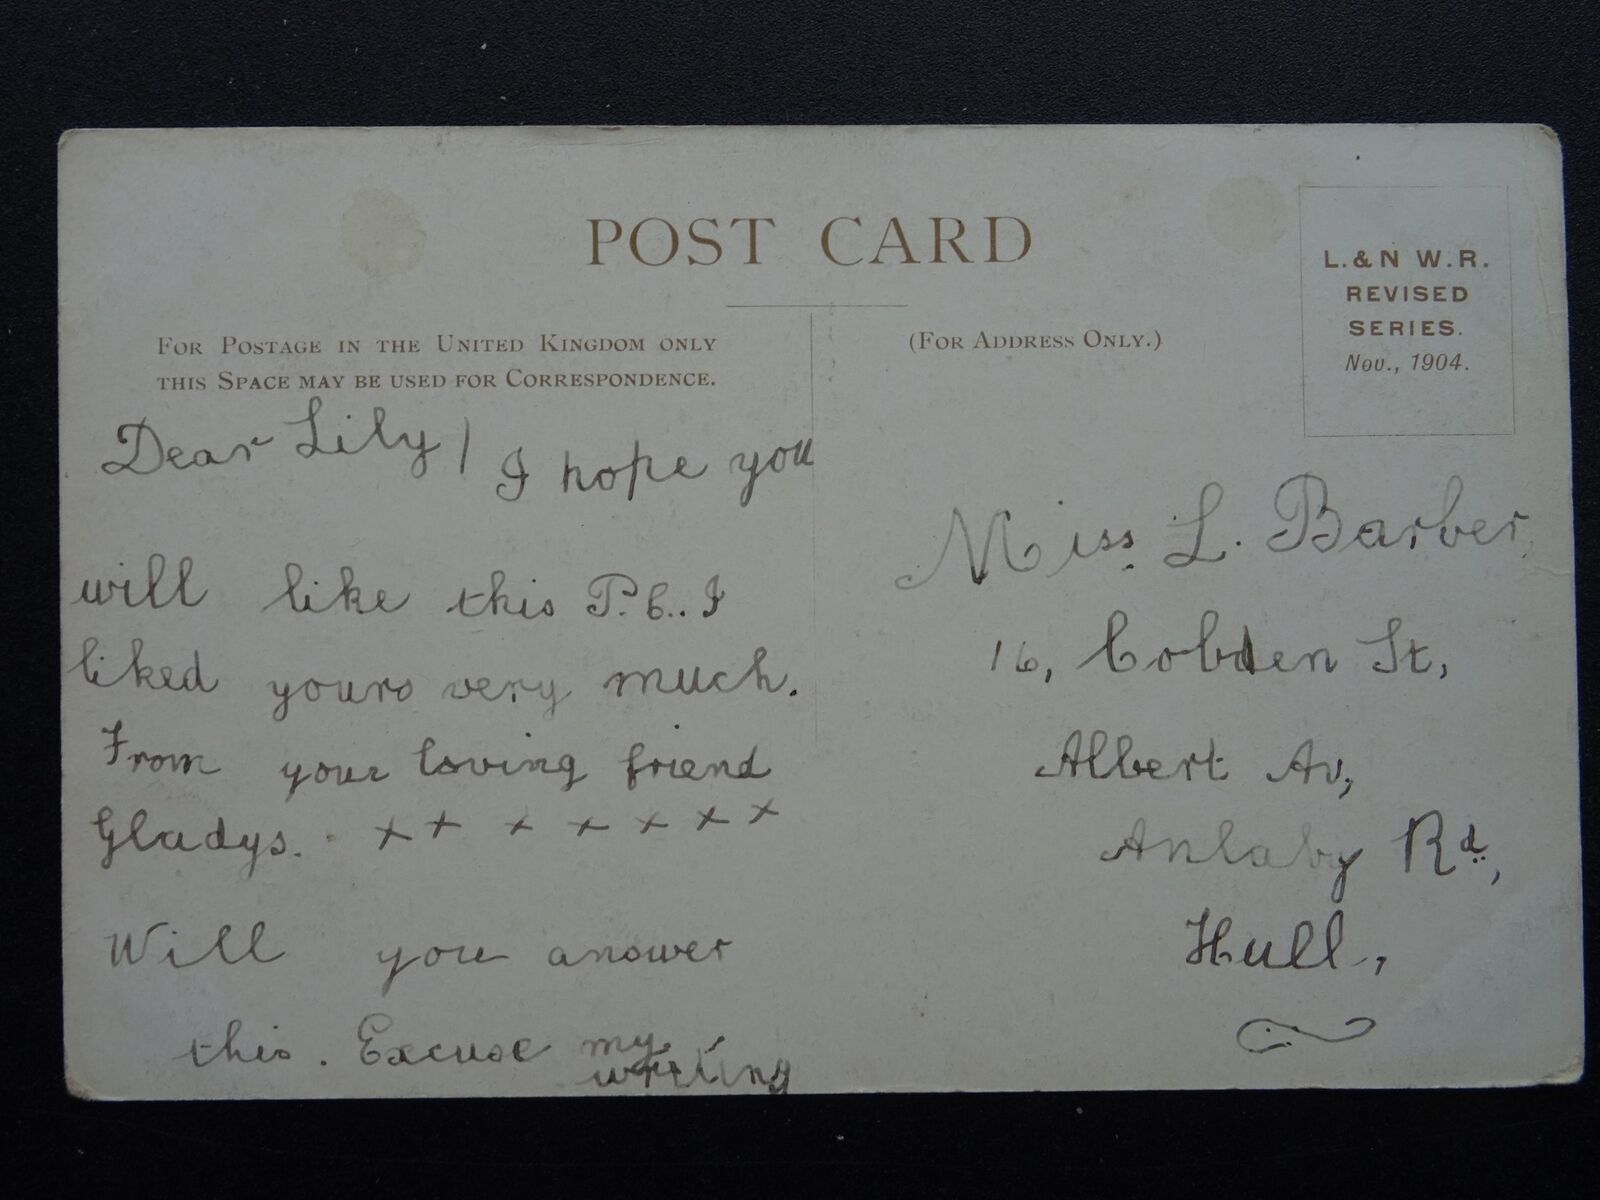 POST CARD
FOR POSTAGE IN THE UNITED KINGDOM ONLY
THIS SPACE MAY BE USED FOR CORRESPONDENCE.
(FOR ADDRESS ONLY.)
L. & N W.R.
REVISED
SERIES.
Nov., 1904.
Dear Lily/ I hope you
will like this P.C.. I
liked yours very much.
From your loving friend
Gladys. x x x x x x x
Will you answer
this. Excuse my
writing
Miss L. Barber,
16, Cobden St,
Albert Av,
Anlaby Rd,
Hull,